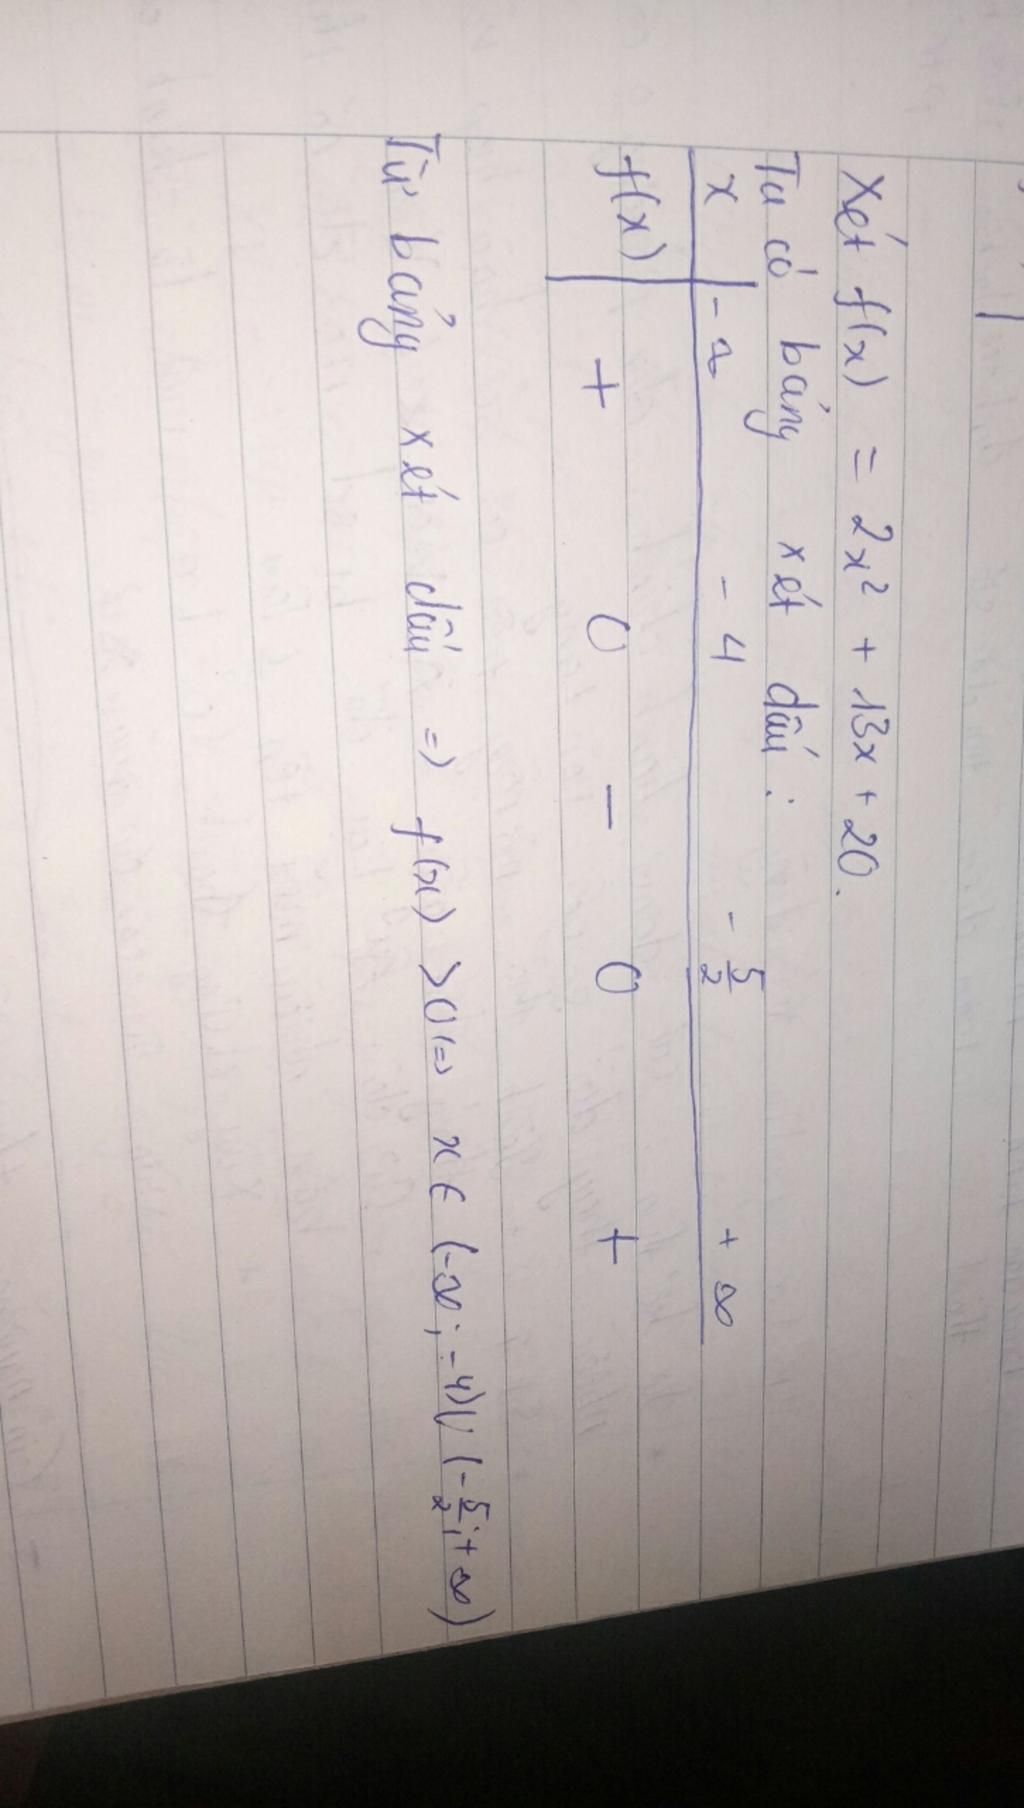 Xét f(x) = 2x² + 13x + 20.
Ta có bảng xét dấu :
x -∞ -4 -5/2 +∞
f(x) + 0 - 0 +
Từ bảng xét dấu => f(x) >0 <=> x ∈ (-∞; -4) ∪ (-5/2; +∞)